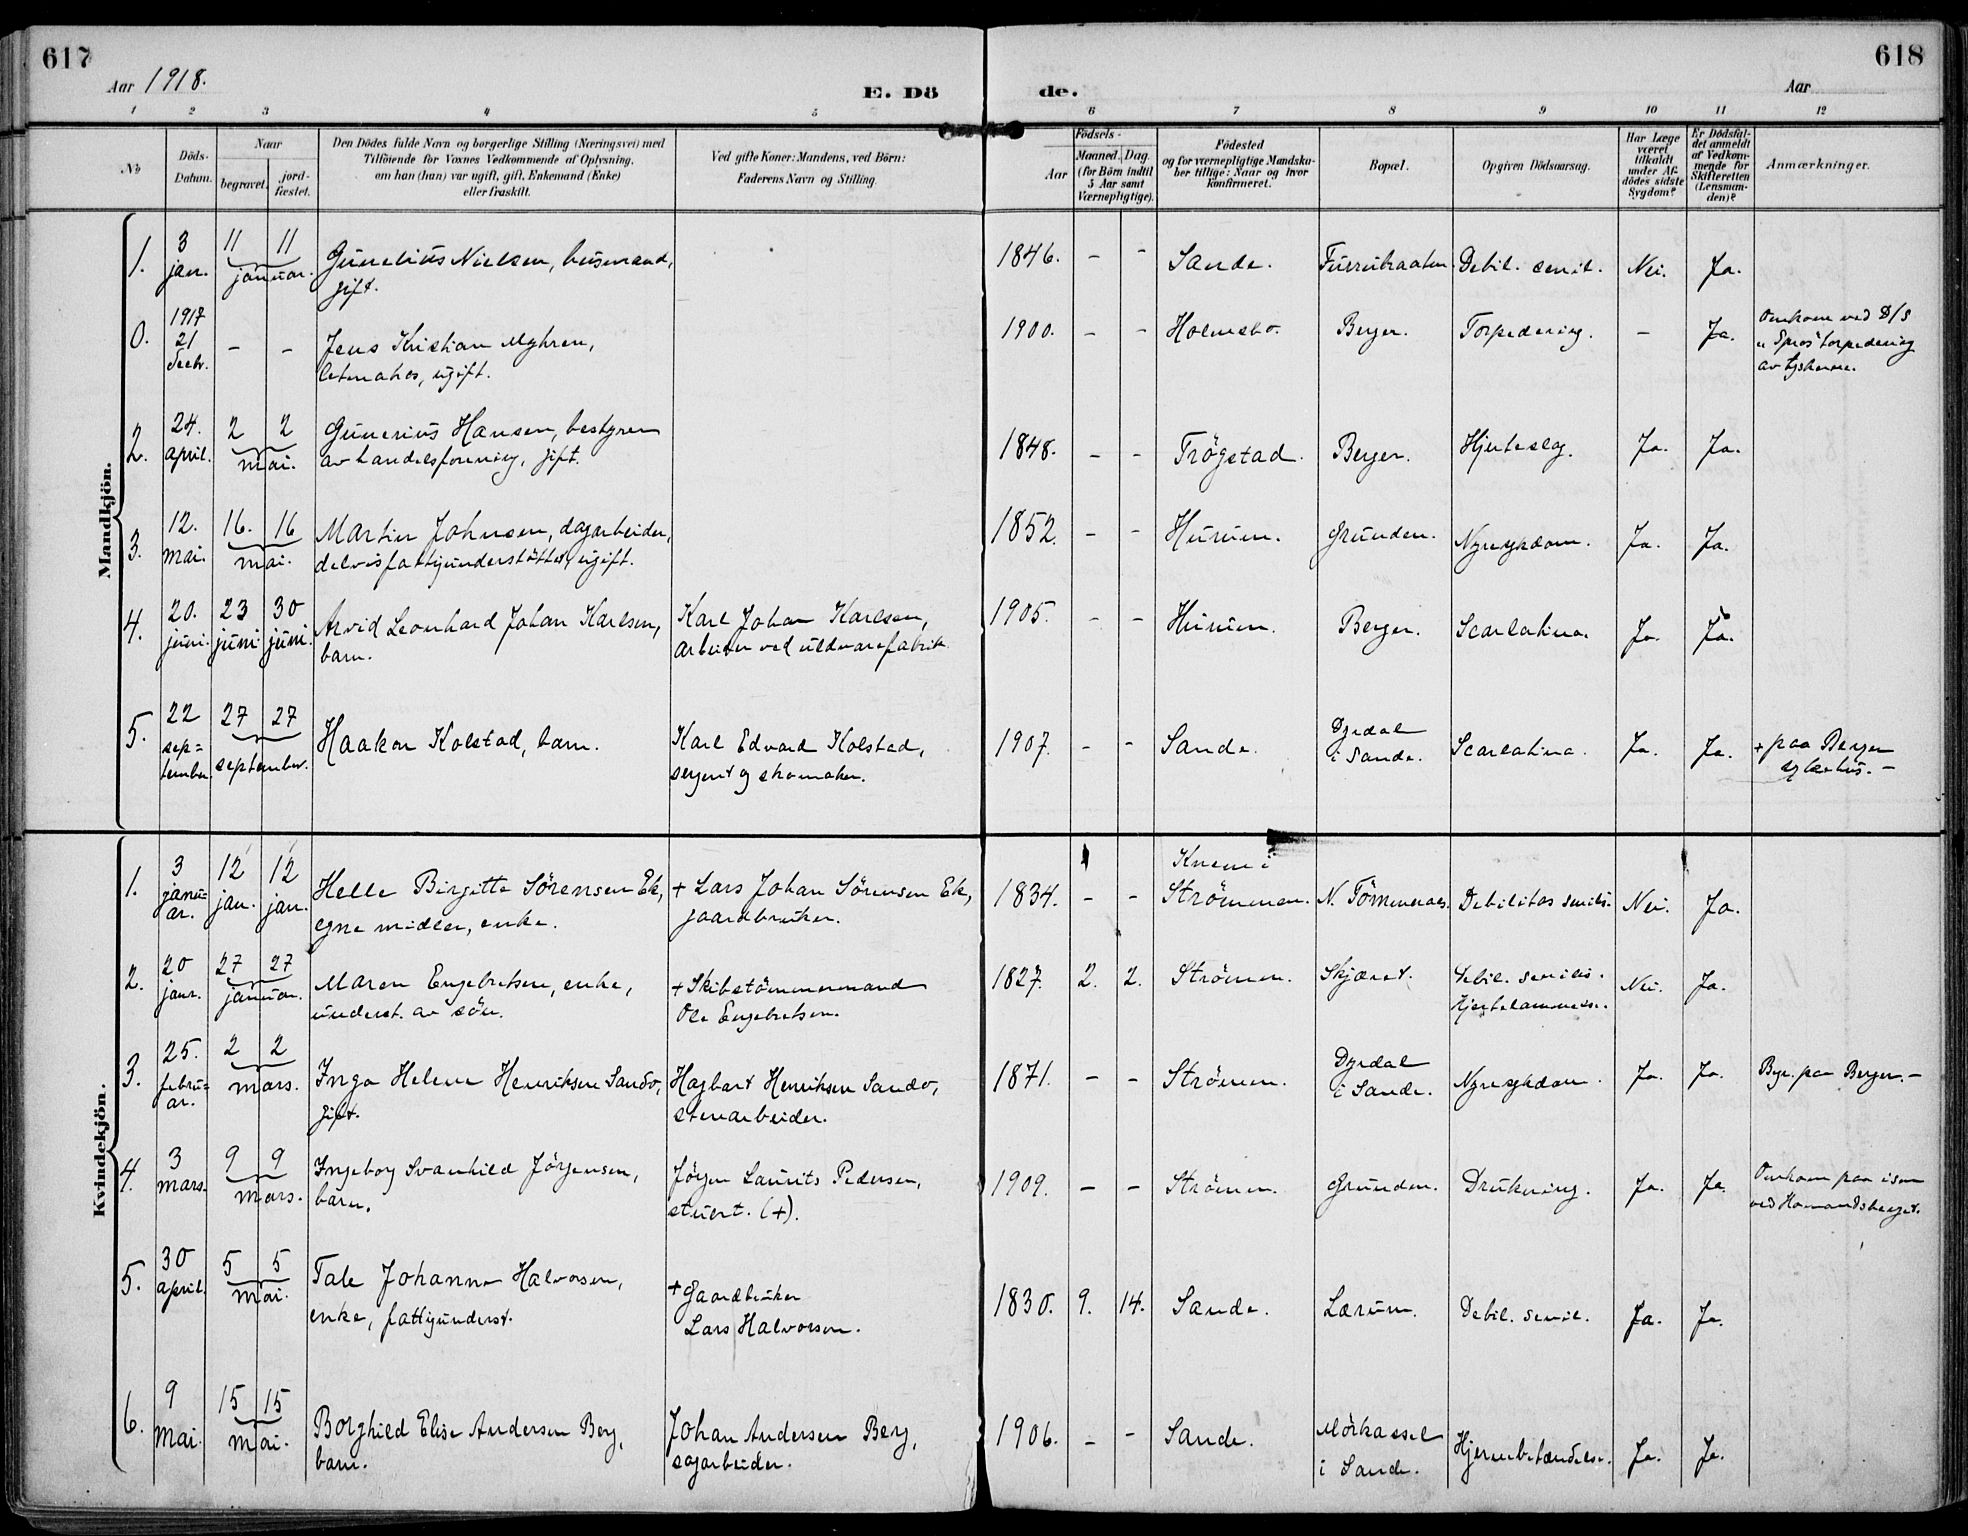 617
Aar 1918.
E. Dö
de.
Aar
618
1 2 3 4 5 6 7 8 9 10 11 12
No
Döds-Datum.
Naar
begravet.
jordfæstet.
Den Dödes fulde Navn og borgerlige Stilling (Næringsvei) med
Tilföiende for Voxnes Vedkommende af Oplysning,
om han (hun) var ugift, gift, Enkemand (Enke)
eller fraskilt.
Ved gifte Koner: Mandens, ved Börn:
Faderens Navn og Stilling.
Födsels-
Aar
Maaned. Dag.
(for Börn indtil
5 Aar samt
Værnepligtige).
Födested
og for værnepligtige Mandskaber tillige: Naar og hvor
konfirmeret.
Bopæl.
Opgiven Dödsaarsag.
Har Læge
været
tilkaldt
under Afdödes sidste
Sygdom?
Er Dödsfaldet anmeldt
af Vedkommende for
Skifteretten
(Lensmanden)?
Anmærkninger.
Mandkjön.
1. 3 jan. 11 11 januar. Gunelius Nielsen, husmand, gift. 1846. – – Sande. Debil. senil. Nei. Ja.
0. 1917 21 Decbr. – – Jens Kristian Myhren, letmatros, ugift. 1900. – – Holmsbo. Berger. Torpedering. – Ja. Omkom ved D/S "Spro's" torpedering av tyskerne.
2. 24. april. 2 2 mai. Gunerius Hansen, bestyrer av handelsforening, gift. 1848. – – Trögstad. Berger. Hjerteslag. Ja. Ja.
3. 12. mai. 16. 16 mai. Martin Johnsen, dagarbeider, delvis fattigunderstöttet, ugift. 1852. – – Hurum. Grunden. Nyresykdom. Ja. Ja.
4. 20. juni. 23 juni. 30 juni. Arvid Leonhard Johan Karlsen, barn. Karl Johan Karlsen, arbeider ved uldvarefabrik. 1905. – – Hurum. Berger. Scarlatina. Ja. Ja.
5. 22 september. 27 27 september. Haakon Kolstad, barn. Karl Edvard Kolstad, sergent og skomaker. 1907. – – Sande. Dyrdal i Sande. Scarlatina. Ja. Ja. + paa Berger sykehus. –
Kvindekjön.
1. 3 januar. 12 jan. 12 jan. Helle Birgitte Sörensen Ek, egne midler, enke. + Lars Johan Sörensen Ek, gaardbruker. 1834. – – Knem i Strömmen. Debilitas senilis. Nei. Ja.
2. 20 janr. 27 27 januar. Maren Engebretsen, enke, underst. av sön. + Skibstömmermand Ole Engebretsen. 1827. 2. 2. Strömm. Skjæret. Debil. senilis. Hjertelammelse. Nei. Ja.
3. 25. februar. 2 2 mars. Inga Helene Henriksen Sando, gift. Hagbart Henriksen Sando, stenarbeider. 1871. – – Strömm. Dyrdal i Sande. Nyresykdom. Ja. Ja. Bgr. paa Berger. –
4. 3 mars. 9 9 mars. Ingeborg Svanhild Jörgensen, barn. Jörgen Laurits Pedersen, stuert. (+). 1909. – – Strömm. Grunden. Drukning. Ja. Ja. Omkom paa isen ved
5. 30 april. 5 5 mai. Tale Johanne Halvorsen, enke, fattigunderst. + Gaardbruker Lars Halvorsen. 1830. 9. 14. Sande. Lærum. Debil. senil. Ja. Ja.
6. 9 mai. 15 15 mai. Borghild Elise Andersen Berg, barn. Johan Andersen Berg, sagarbeider. 1906. – – Sande. Mörkassel i Sande. Hjernebetændelse. Ja. Ja.